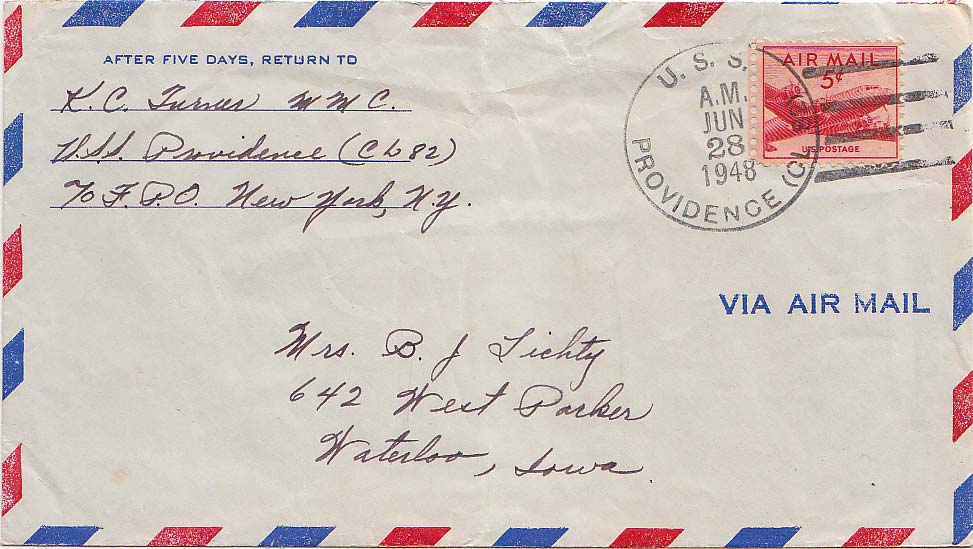 AFTER FIVE DAYS, RETURN TO
K. C. Turner M M C.
U.S.S. Providence (CL82)
c/o F.P.O. New York, N.Y.
U. S. S.
PROVIDENCE (CL
A.M.
JUN
28
1948
AIR MAIL
5¢
U.S. POSTAGE
VIA AIR MAIL
Mrs. B. J Lichty
642 West Parker
Waterloo, Iowa